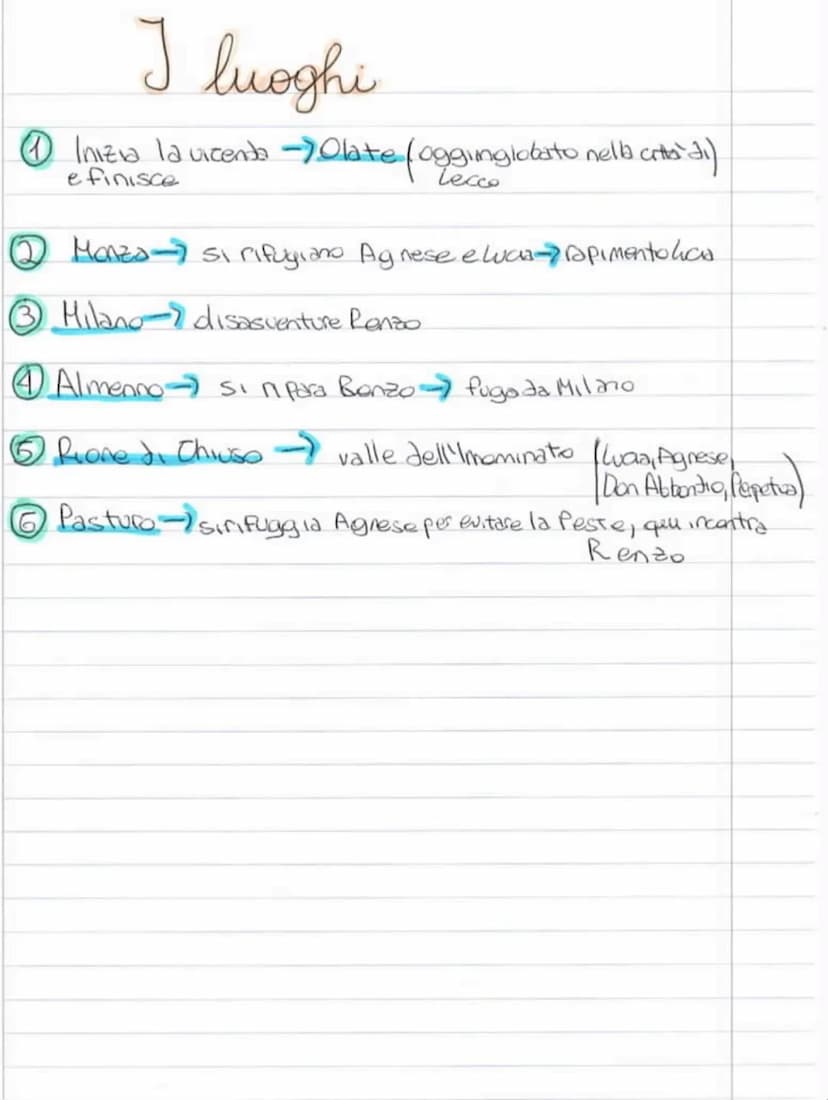 I luoghi
① Inizia la vicenda → Olate (oggi inglobato nella città di)
e finisce Lecco
② Monza → si rifugiano Agnese e Lucia → rapimento Lucia
③ Milano → disavventure Renzo
④ Almenno → si ripara Renzo → fuga da Milano
⑤ Rione di Chiuso → valle dell'Innominato (Lucia, Agnese,
Don Abbondio, Perpetua)
⑥ Pasturo → si rifuggia Agnese per evitare la Peste, qui incontra
Renzo